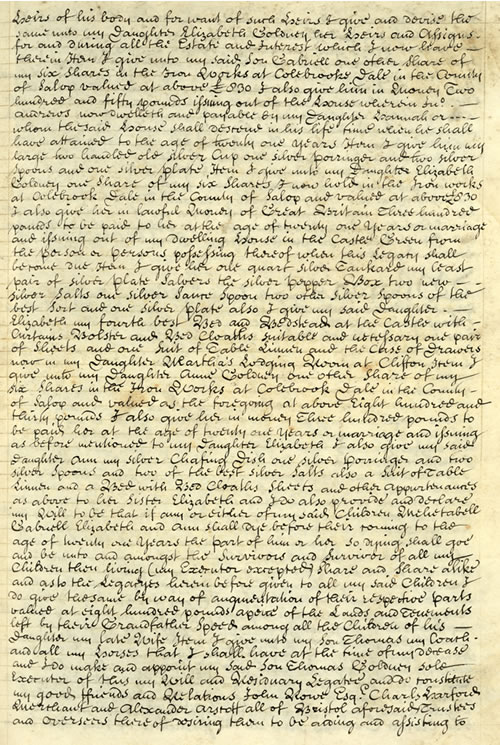 Heirs of his body and for want of such Heirs I give and devise the
same unto my Daughter Elizabeth Goldney her Heirs and Assigns
for and During all the Estate and Interest which I now have
therein Item I give unto my said Son Gabriell one other share of
my six Shares in the Iron Works at Colebrooke Dale in the County
of Salop valued at above £830 I also give him in Money Two
hundred and fifty pounds issuing out of the House wherein
Andrews now dwelleth and payable by my Daughter Hannah or
whom the said House shall descend in his life time when he shall
have attained to the age of twenty one Years Item I give him my
large two handled old Silver Cup one silver porringer and two silver
spoons and one silver plate Item I give unto my Daughter Elizabeth
Goldney one Share of my six Shares I now hold in the Iron works
at Colebrook Dale in the County of Salop and valued at above £830
I also give her in lawful Money of Great Britain Three hundred
pounds to be paid to her at the age of twenty one Years or marriage
and issuing out of my Dwelling House in the Castle Green from
the person or persons possessing thereof when this Legacy shall
become due Item I give her one quart silver Tankard my least
pair of silver plate Salvers the silver pepper Box two new
silver Salts one silver Sauce Spoon two other silver Spoons of the
best sort and one silver plate also I give my said Daughter
Elizabeth my fourth best Bed and Bedstead at the Castle with
Curtains Bolster and Bed Cloaths suitable and necessary one pair
of sheets and one Suit of Table Linnen and the Case of Drawers
now in my Daughter Mehetabels Lodging Room at Clifton Item I
give unto my Daughter Anne Goldney one other Share of my
six Shares in the Iron Works at Colebrook Dale in the County
of Salop and valued as the foregoing at above Eight hundred and
thirty pounds I also give her in money Three hundred pounds to
be paid her at the age of twenty one Years or marriage and issuing
as before mentioned to my Daughter Elizabeth I also give my said
Daughter Ann my silver Chafing Dish one silver Porringer and two
silver Spoons and two of the best silver salts also a Suit of Table
Linnen and a Bed with Bed Cloaths Sheets and other appurtenances
as above to her Sister Elizabeth and I do also provide and declare
my Will to be that if any or either of my said Children Mehetabell
Gabriell Elizabeth and Ann shall dye before their coming to the
age of twenty one Years the part of him or her so dying shall goe
and be unto and amongst the Survivors and Survivor of all my
Children then living (my Executor excepted) share and share alike
and as to the Legacyes herein before given to all my said Children I
do give the same by way of augmentation of their respective parts
valued at eight hundred pounds apeice of the Lands and Tenements
left by their Grandfather Speed among all the Children of his
Daughter my late Wife Item I give unto my Son Thomas my Coach
and all my Horses that I shall have at the time of my decease
and I do make and appoint my said Son Thomas Goldney sole
Executor of this my Will and Residuary Legatee and do constitute
my good ffriends and Relations John Rowe Esqr Charles Harford
Merchant and Alexander Arscott all of Bristol aforesaid Trustees
and Overseers thereof desiring them to be aiding and assisting to